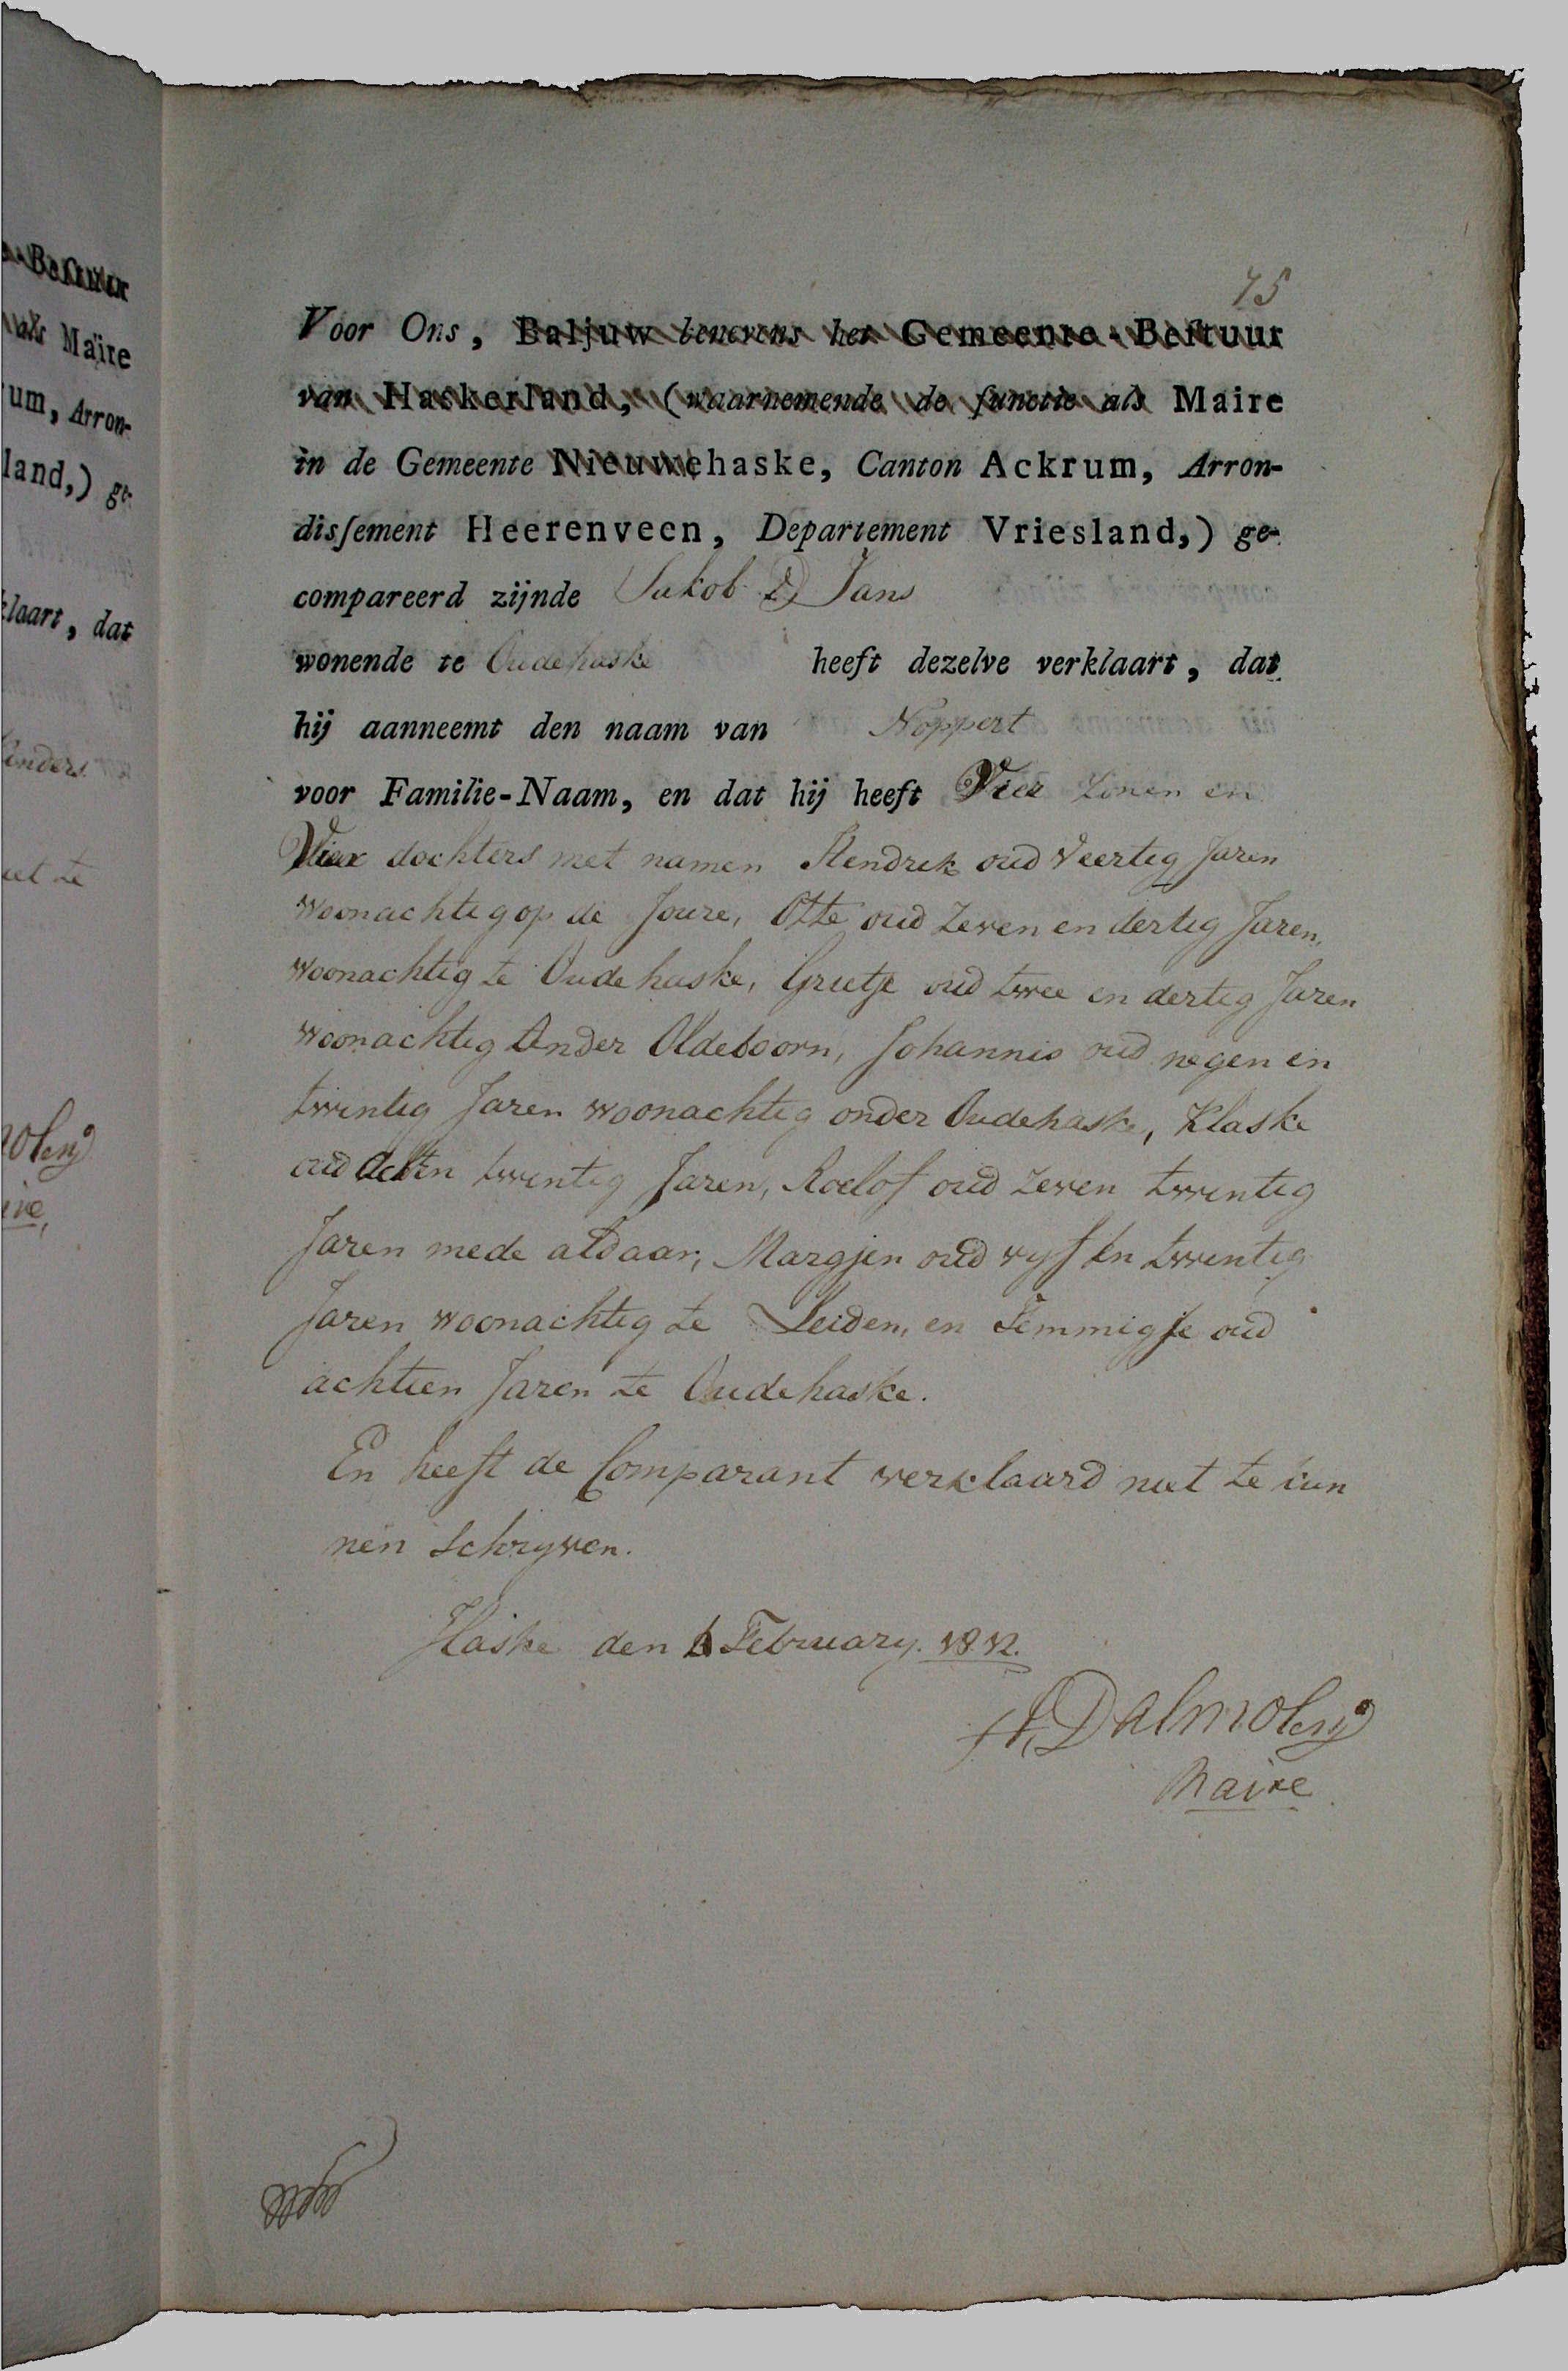 75
Voor Ons, Baljuw benevens het Gemeente-Bestuur
van Haskerland, (waarnemende de functie als Maire
in de Gemeente Nieuwehaske, Canton Ackrum, Arron-
disſement Heerenveen, Departement Vriesland,) ge-
compareerd zijnde Jakob D Jans
wonende te Oudehaske heeft dezelve verklaart, dat
hij aanneemt den naam van Noppert
voor Familie-Naam, en dat hij heeft Vier Zonen en
Vier dochters met namen Hendrik oud Veertig Jaren
woonachtig op de Joure, Otte oud Zeven en dertig Jaren,
woonachtig te Oudehaske, Grietje oud twee en dertig Jaren
woonachtig Onder Oldeboorn, Johannis oud negen en
twintig Jaren woonachtig onder Oudehaske, Klaske
oud twintig Jaren, Roelof oud Zeven twintig
Jaren mede aldaar, Margjen oud vyf En twintig
Jaren woonachtig te Leiden, en Jemmigje oud
achtien Jaren te Oudehaske.
En heeft de Comparant verklaard niet te kun
nen Schryven.
Haske den 6 February. 1812.
Dalmoleny
Maire
Bestuur
als Maire
um, Arron-
land,) ge-
klaart, dat
Kinders
niet te
moleny
ire,